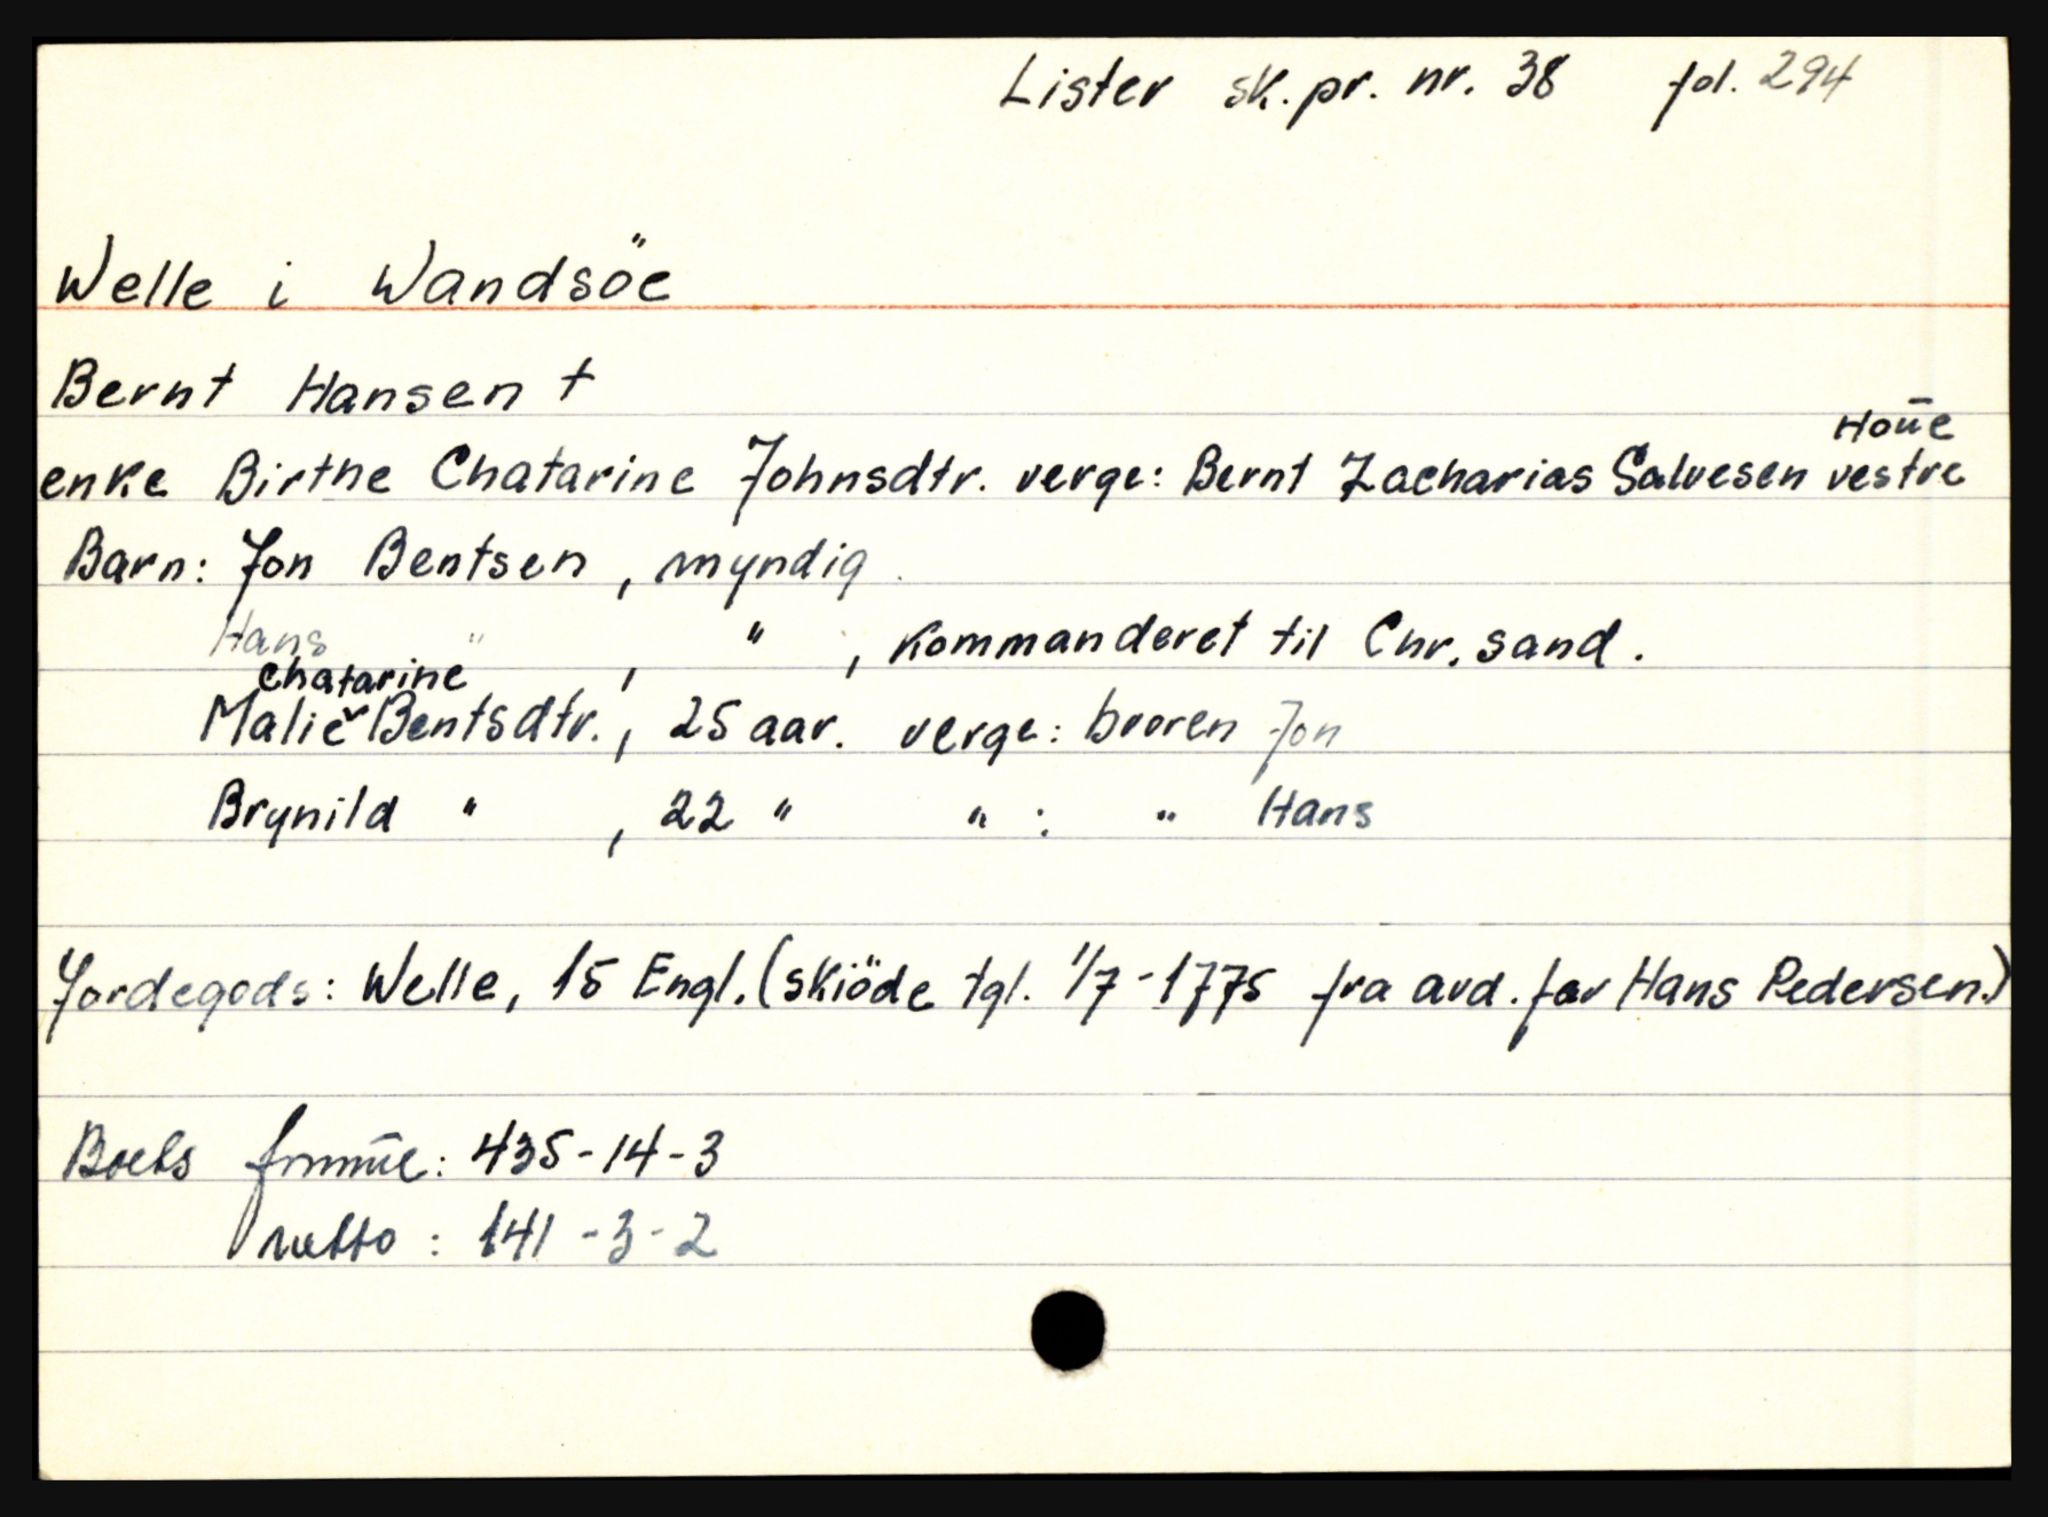 Lister sk.pr. nr. 38 fol. 294
Welle i Wandsöe
Bernt Hansen †
Houe
enke Birthe Chatarine Johnsdtr. verge: Bernt Zacharias Salvesen vestre
Barn: Jon Bentsen, myndig.
Hans " , " , kommanderet til Chr.sand.
Chatarine
Malie ˅ Bentsdtr., 25 aar. verge: broren Jon
Brynild " , 22 " " : " Hans
Jordegods: Welle, 15 Engl. (skiöde tgl. 1/7-1775 fra avd. far Hans Pedersen.)
Boets : 435-14-3
netto : 141-3-2